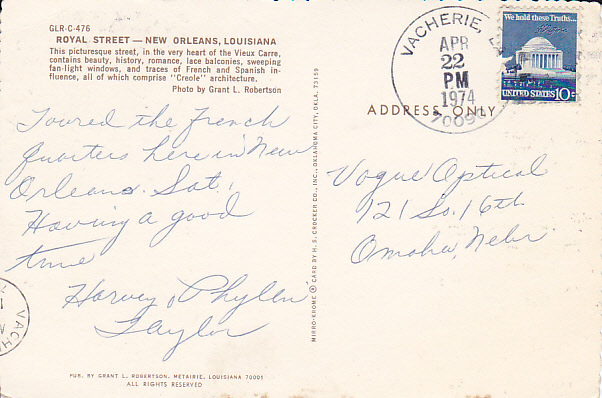 GLR-C-476
ROYAL STREET — NEW ORLEANS, LOUISIANA
This picturesque street, in the very heart of the Vieux Carre,
contains beauty, history, romance, lace balconies, sweeping
fan-light windows, and traces of French and Spanish in-
fluence, all of which comprise "Creole" architecture.
Photo by Grant L. Robertson
Toured the french
quarters here in New
Orleans. Sat.,
Having a good
time
Harvey & Phyllis
Taylor
PUB. BY GRANT L. ROBERTSON, METAIRIE, LOUISIANA 70001
ALL RIGHTS RESERVED
MIRRO-KROME ® CARD BY H. S. CROCKER CO., INC., OKLAHOMA CITY, OKLA. 73159
VACHERIE, LA
APR
22
PM
1974
70090
We hold these Truths...
UNITED STATES 10c
ADDRESS ONLY
Vogue Optical
121 So. 16th
Omaha, Nebr
VACH